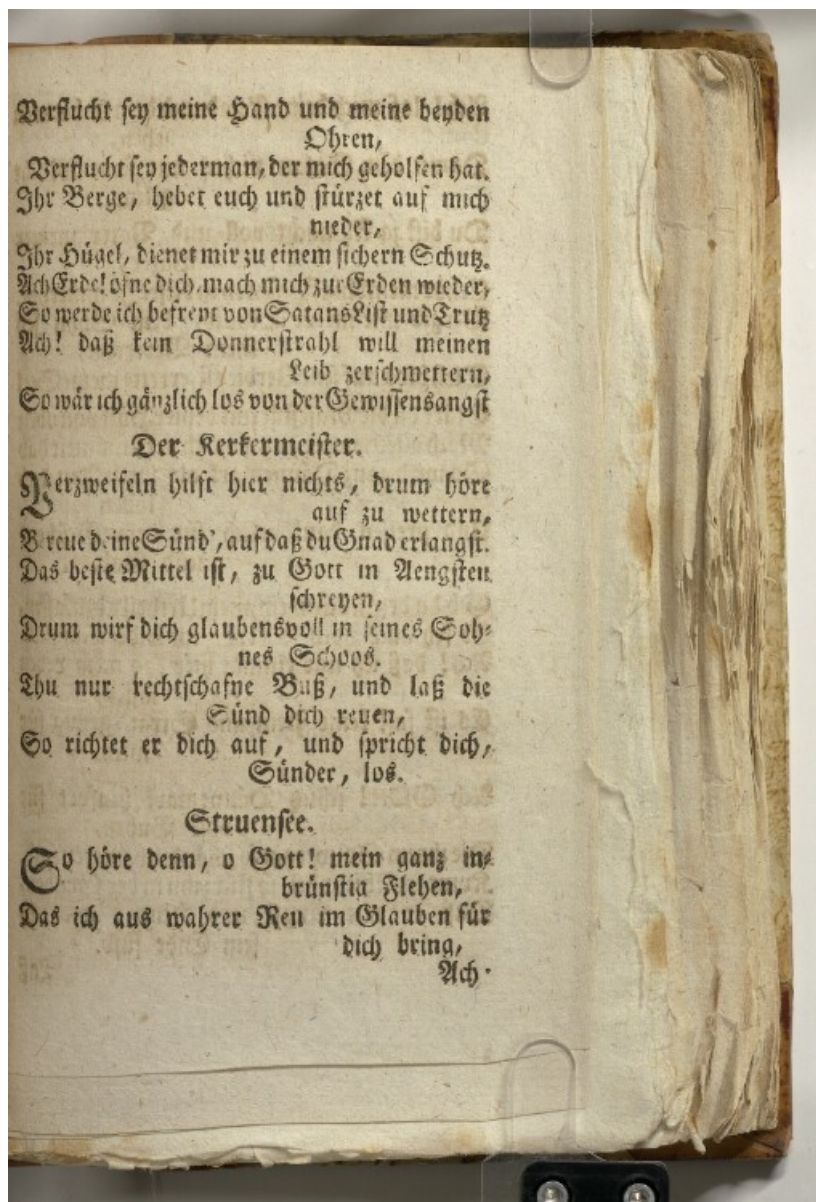 Verflucht sey meine Hand und meine beyden
Ohren,
Verflucht sey jederman, der mich geholfen hat.
Ihr Berge, hebet euch und stürzet auf mich
nieder,
Ihr Hügel, dienet mir zu einem sichern Schutz.
Ach Erde! öfne dich, mach mich zur Erden wieder,
So werde ich befreyt von Satans List und Trutz
Ach! daß kein Donnerstrahl will meinen
Leib zerschmettern,
So wär ich gänzlich los von der Gewissensangst
Der Kerkermeister.
Verzweifeln hilft hier nichts, drum höre
auf zu wettern,
Bereue deine Sünd', auf daß du Gnad erlangst.
Das beste Mittel ist, zu Gott in Aengsten
schreyen,
Drum wirf dich glaubensvoll in seines Soh-
nes Schoos.
Thu nur rechtschafne Buß, und laß die
Sünd dich reuen,
So richtet er dich auf, und spricht dich,
Sünder, los.
Struensee.
So höre denn, o Gott! mein ganz in-
brünstig Flehen,
Das ich aus wahrer Reu im Glauben für
dich bring,
Ach